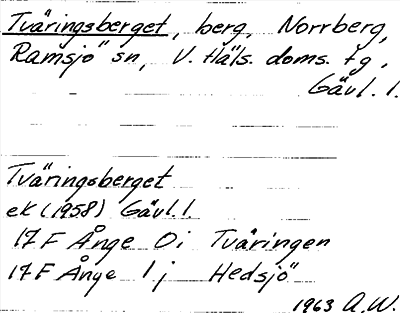 Tväringsberget, berg, Norrberg,
Ramsjö sn, V. Häls. doms. tg,
Gävl. l.
Tväringsberget
ek (1958) Gävl. l.
17 F Ånge 0 i Tväringen
17 F Ånge 1 j Hedsjö
1963 A.W.